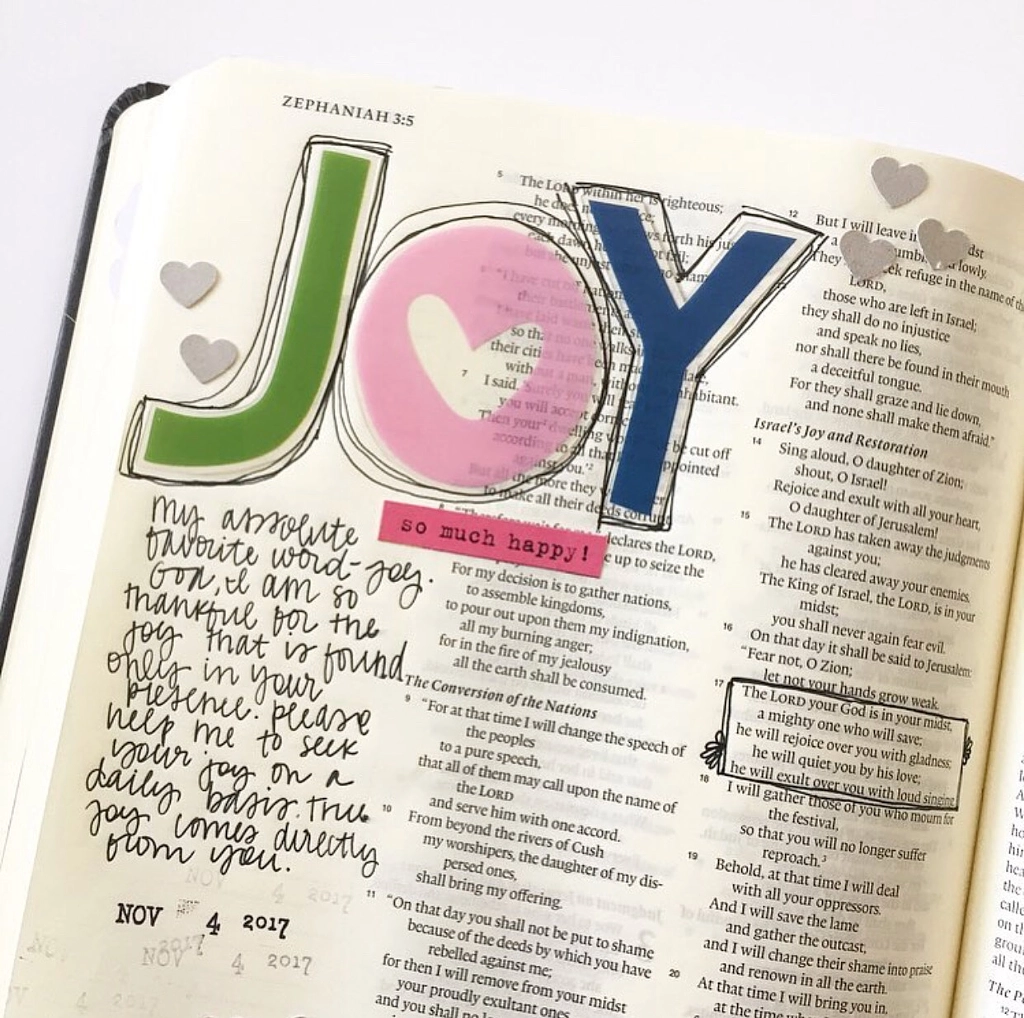 ZEPHANIAH 3:5
JOY
so much happy!
My absolute
favorite word-joy.
God, I am so
thankful for the
joy that is found
only in your
presence. please
help me to seek
your joy on a
daily basis. True
joy comes directly
from you.
NOV 4 2017
NOV 4 2017
NOV 4 2017
5 The Lord within her is righteous;
he does
every morning
each dawn he
so that no one walks
their cities have been made
without a man, without
inhabitant.
7 I said,
you will accept
Then your dwelling would be cut off
according to all that appointed
against you.'2
But all the more they
to make all their deeds corrupt.
declares the LORD,
up to seize the
For my decision is to gather nations,
to assemble kingdoms,
to pour out upon them my indignation,
all my burning anger;
for in the fire of my jealousy
all the earth shall be consumed.
The Conversion of the Nations
9 "For at that time I will change the speech of
the peoples
to a pure speech,
that all of them may call upon the name of
the LORD
and serve him with one accord.
10 From beyond the rivers of Cush
my worshipers, the daughter of my dis-
persed ones,
shall bring my offering.
11 "On that day you shall not be put to shame
because of the deeds by which you have
rebelled against me;
for then I will remove from your midst
your proudly exultant ones,
and you shall no
12 But I will leave in
lowly.
They seek refuge in the name of the
LORD,
those who are left in Israel;
they shall do no injustice
and speak no lies,
nor shall there be found in their mouth
a deceitful tongue.
For they shall graze and lie down,
and none shall make them afraid."
Israel's Joy and Restoration
14 Sing aloud, O daughter of Zion;
shout, O Israel!
Rejoice and exult with all your heart,
O daughter of Jerusalem!
15 The LORD has taken away the judgments
against you;
he has cleared away your enemies.
The King of Israel, the LORD, is in your
midst;
you shall never again fear evil.
16 On that day it shall be said to Jerusalem:
"Fear not, O Zion;
let not your hands grow weak.
17 The LORD your God is in your midst,
a mighty one who will save;
he will rejoice over you with gladness;
he will quiet you by his love;
he will exult over you with loud singing.
18 I will gather those of you who mourn for
the festival,
so that you will no longer suffer
reproach.3
19 Behold, at that time I will deal
with all your oppressors.
And I will save the lame
and gather the outcast,
and I will change their shame into praise
and renown in all the earth.
20 At that time I will bring you in,
at the time